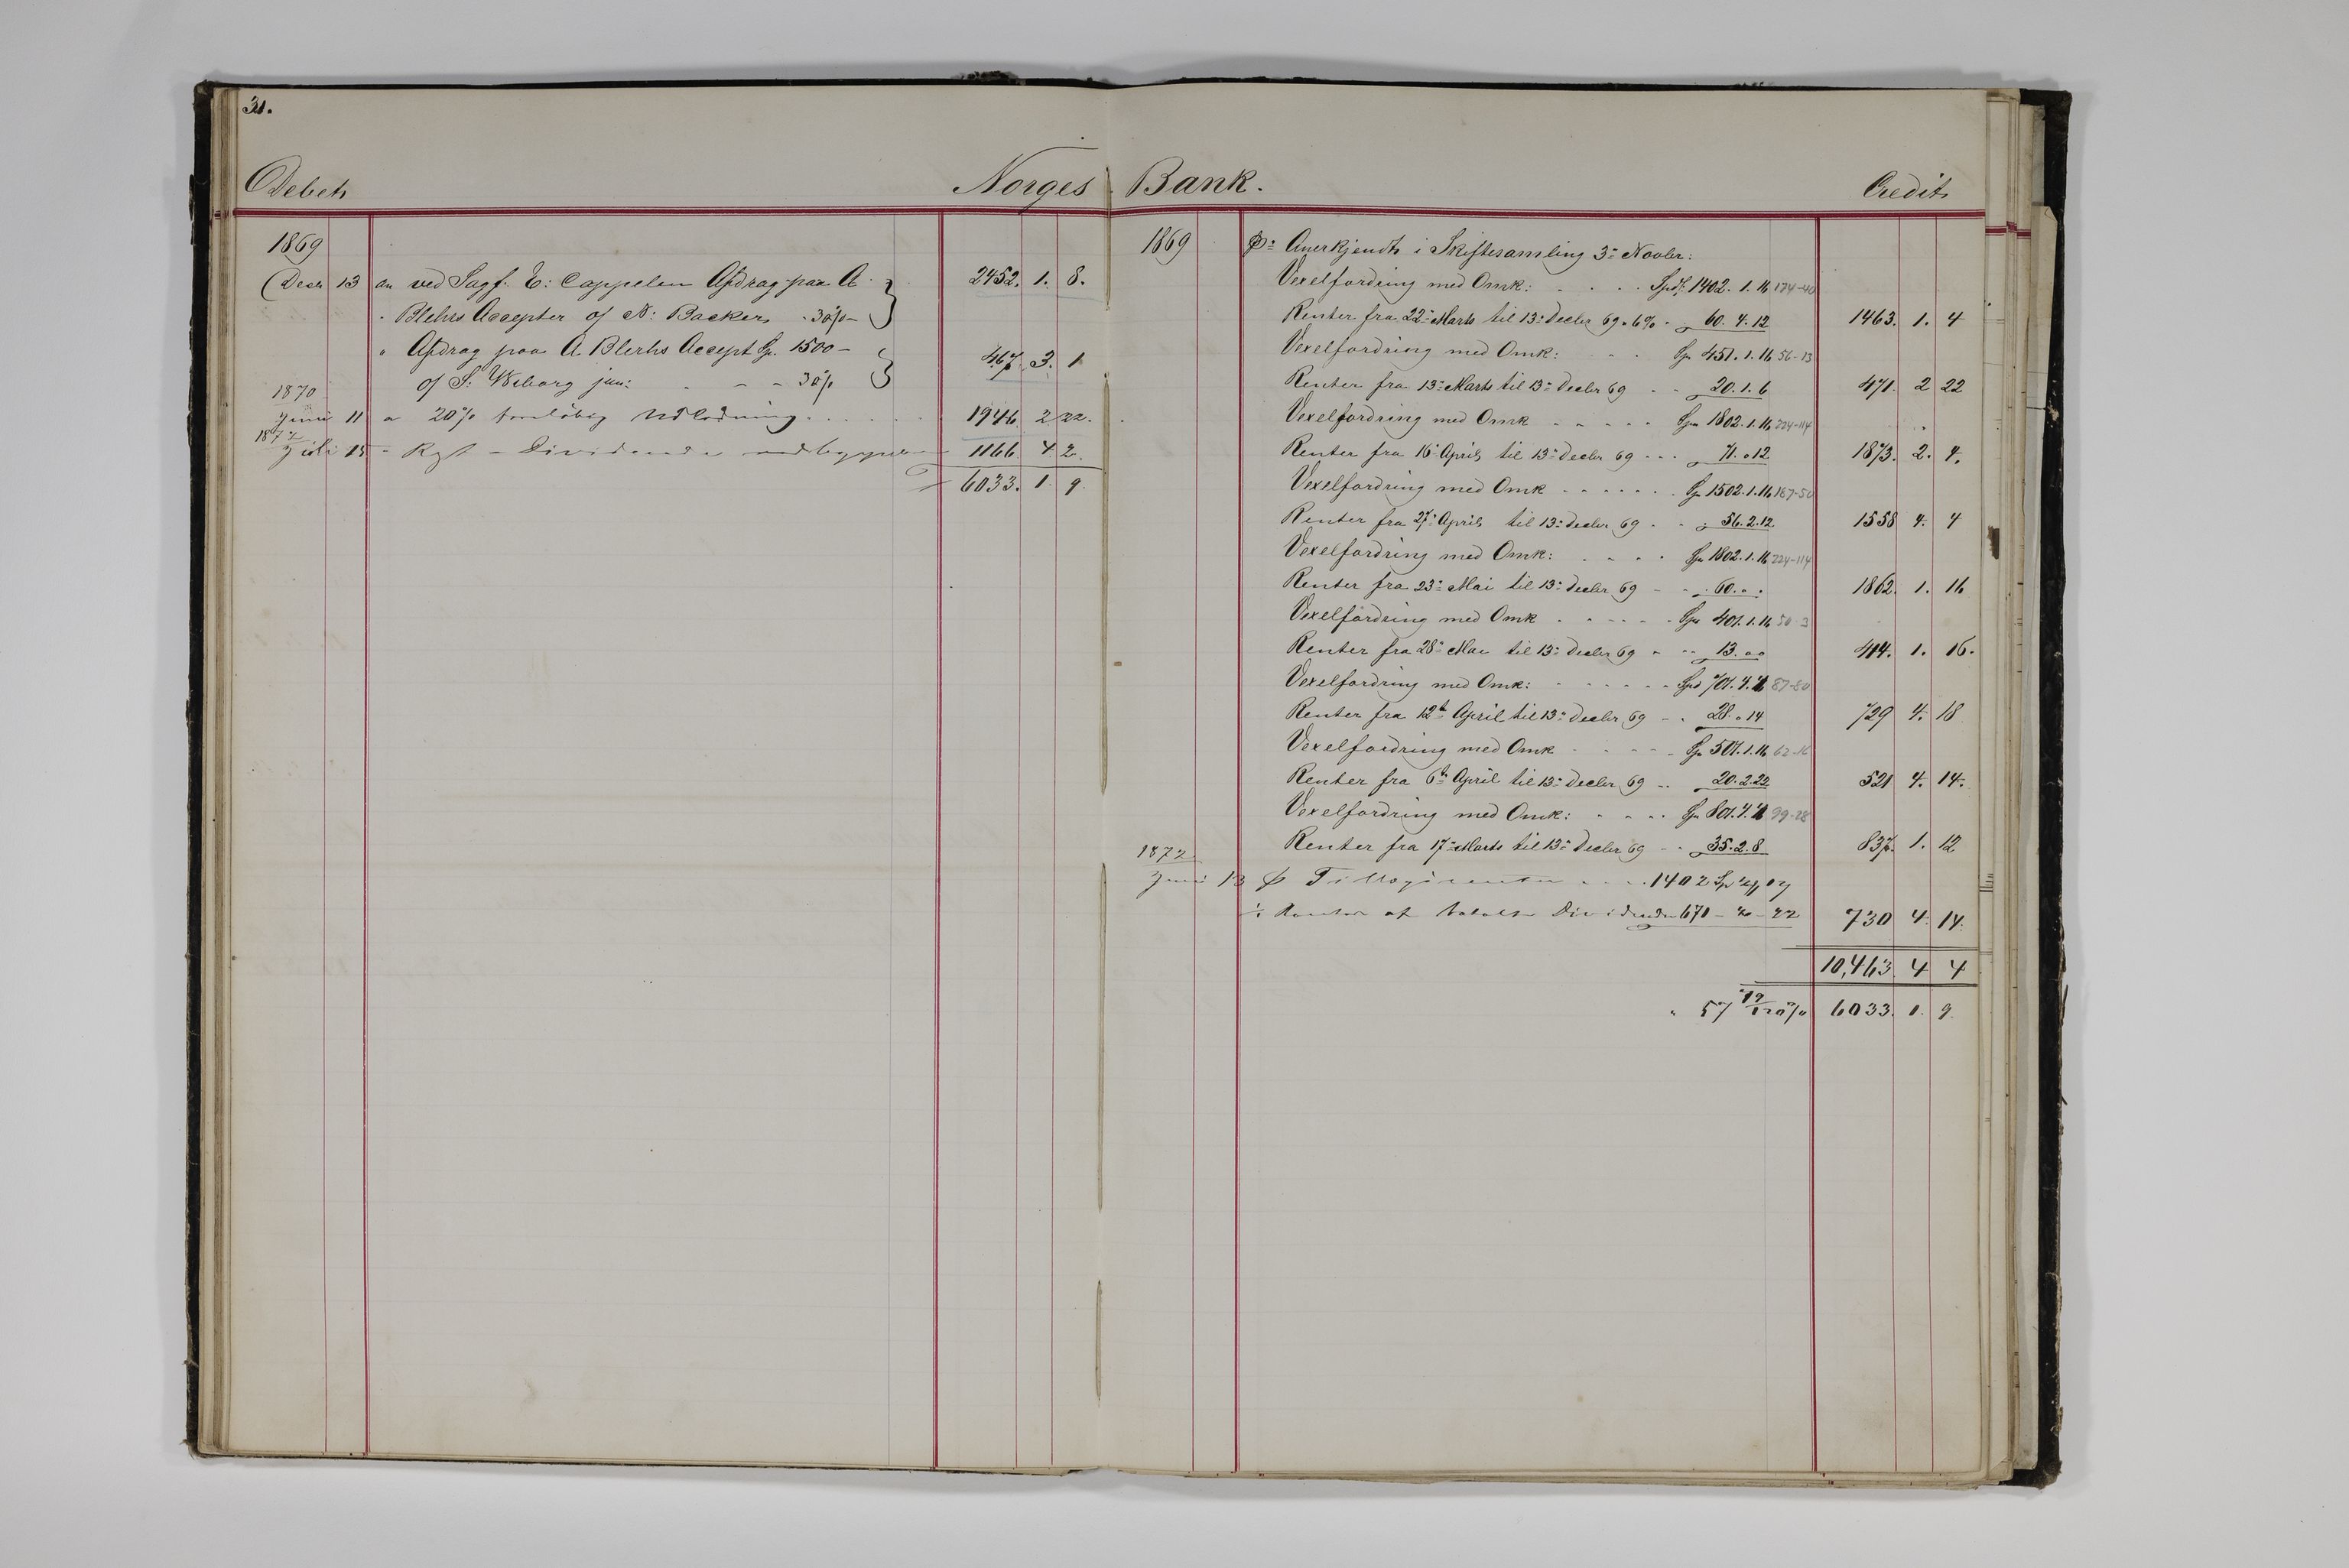 31.
Debet
Norges Bank.
Credit
1869
Decbr 13 an ved Sagf. E: Cappelen Afdrag paa A
2452. 1. 8.
" Blehrs Accepter of N: Backer - 30% -
" Afdrag paa A Blerhs Accept Sp. 1500 -
467. 3. 1
of S: Wiborg jun: - - - 30%
1870
Juni 11 " 20% foreløbig Udlodning . . . . . .
1946. 2 22.
1872
Juli 15 - Rest - Dividende
1166 4 2
6033. 1. 9.
1869
pr: Anerkjendt i Skiftesamling 3- Novbr:
Vexelfordring med Omk: . . . . Spd. 1402. 1. 16 174-40
Renter fra 22- Marts til 13- Decbr 69 - 6% - " 60. 4. 12
1463. 1. 4
Vexelfordring med Omk: . . Sp 451. 1. 16 56-13
Renter fra 13- Marts til 13- Decbr 69 - - 20. 1. 6
471. 2 22
Vexelfordring med Omk - - - - - Spd 1802. 1. 16 224-114
Renter fra 16- April til 13- Decbr 69 - - - 71. " 12
1873. 2. 4.
Vexelfordring med Omk - - - - - - Sp 1502. 1. 16 187-50
Renter fra 27- April til 13- Decbr 69 - - " 56. 2. 12.
1558 4. 4
Vexelfordring med Omk: - - - - Sp 1802. 1. 16 224-114
Renter fra 23- Mai til 13- Decbr 69 - - " 60. " "
1862. 1. 16
Vexelfordring med Omk - - - - - Sp 401. 1. 16 50-3
Renter fra 28- Mai til 13- Decbr 69 - - - 13. " "
414. 1. 16.
Vexelfordring med Omk: - - - - - - Spd 701. 4. 4 87-80
Renter fra 12te April til 13- Decbr 69 - - 28. " 14
729 4. 18
Vexelfordring med Omk - - - - - Sp 501. 1. 16 62-16
Renter fra 6te April til 13- Decbr 69 - - 20. 2. 22
521 4. 14.
Vexelfordring med Omk: - - - - Sp 801. 4. 4 99-28
Renter fra 17- Marts til 13- Decbr 69 - - " 35. 2. 8
837. 1. 12
1872
Juni 13 pr Tillægsrenter - - - - 1402 Sp
÷ Renter af betalt Dividende 671 - " - 22
730 4. 14.
10,463. 4 4
" 57 %
6033. 1. 9.